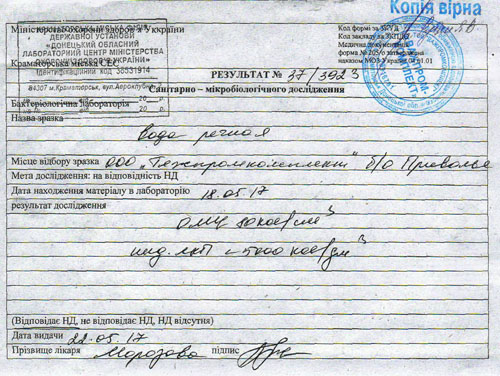 Копія вірна
Міністерство охорони здоров'я України
ДЕРЖАВНОЇ УСТАНОВИ
«ДОНЕЦЬКИЙ ОБЛАСНИЙ
ЛАБОРАТОРНИЙ ЦЕНТР МІНІСТЕРСТВА
ОХОРОНИ ЗДОРОВ'Я УКРАЇНИ»
Ідентифікаційний код 38531914
84307 м.Краматорськ, вул.Аероклубна
Код форми за ЗКУД
Код закладу за ЗКПО
Медична документація
форма № 205/о затверджена
наказом МОЗ України 04.01.01
Краматорська міська СЕС
РЕЗУЛЬТАТ № 37/3923
Санітарно – мікробіологічного дослідження
Бактеріологічна лабораторія
Назва зразка
Вода речная
Місце відбору зразка ООО „Техпромкомплект" б/о Приволье
Мета дослідження: на відповідність НД
Дата находження матеріалу в лабораторію 18.05.17
результат дослідження
ОМЧ 80 кое/см³
инд. ЛКП – 5000 кое/дм³
(Відповідає НД, не відповідає НД, НД відсутня)
Дата видачи 22.05.17
Прізвище лікаря Морозова підпис